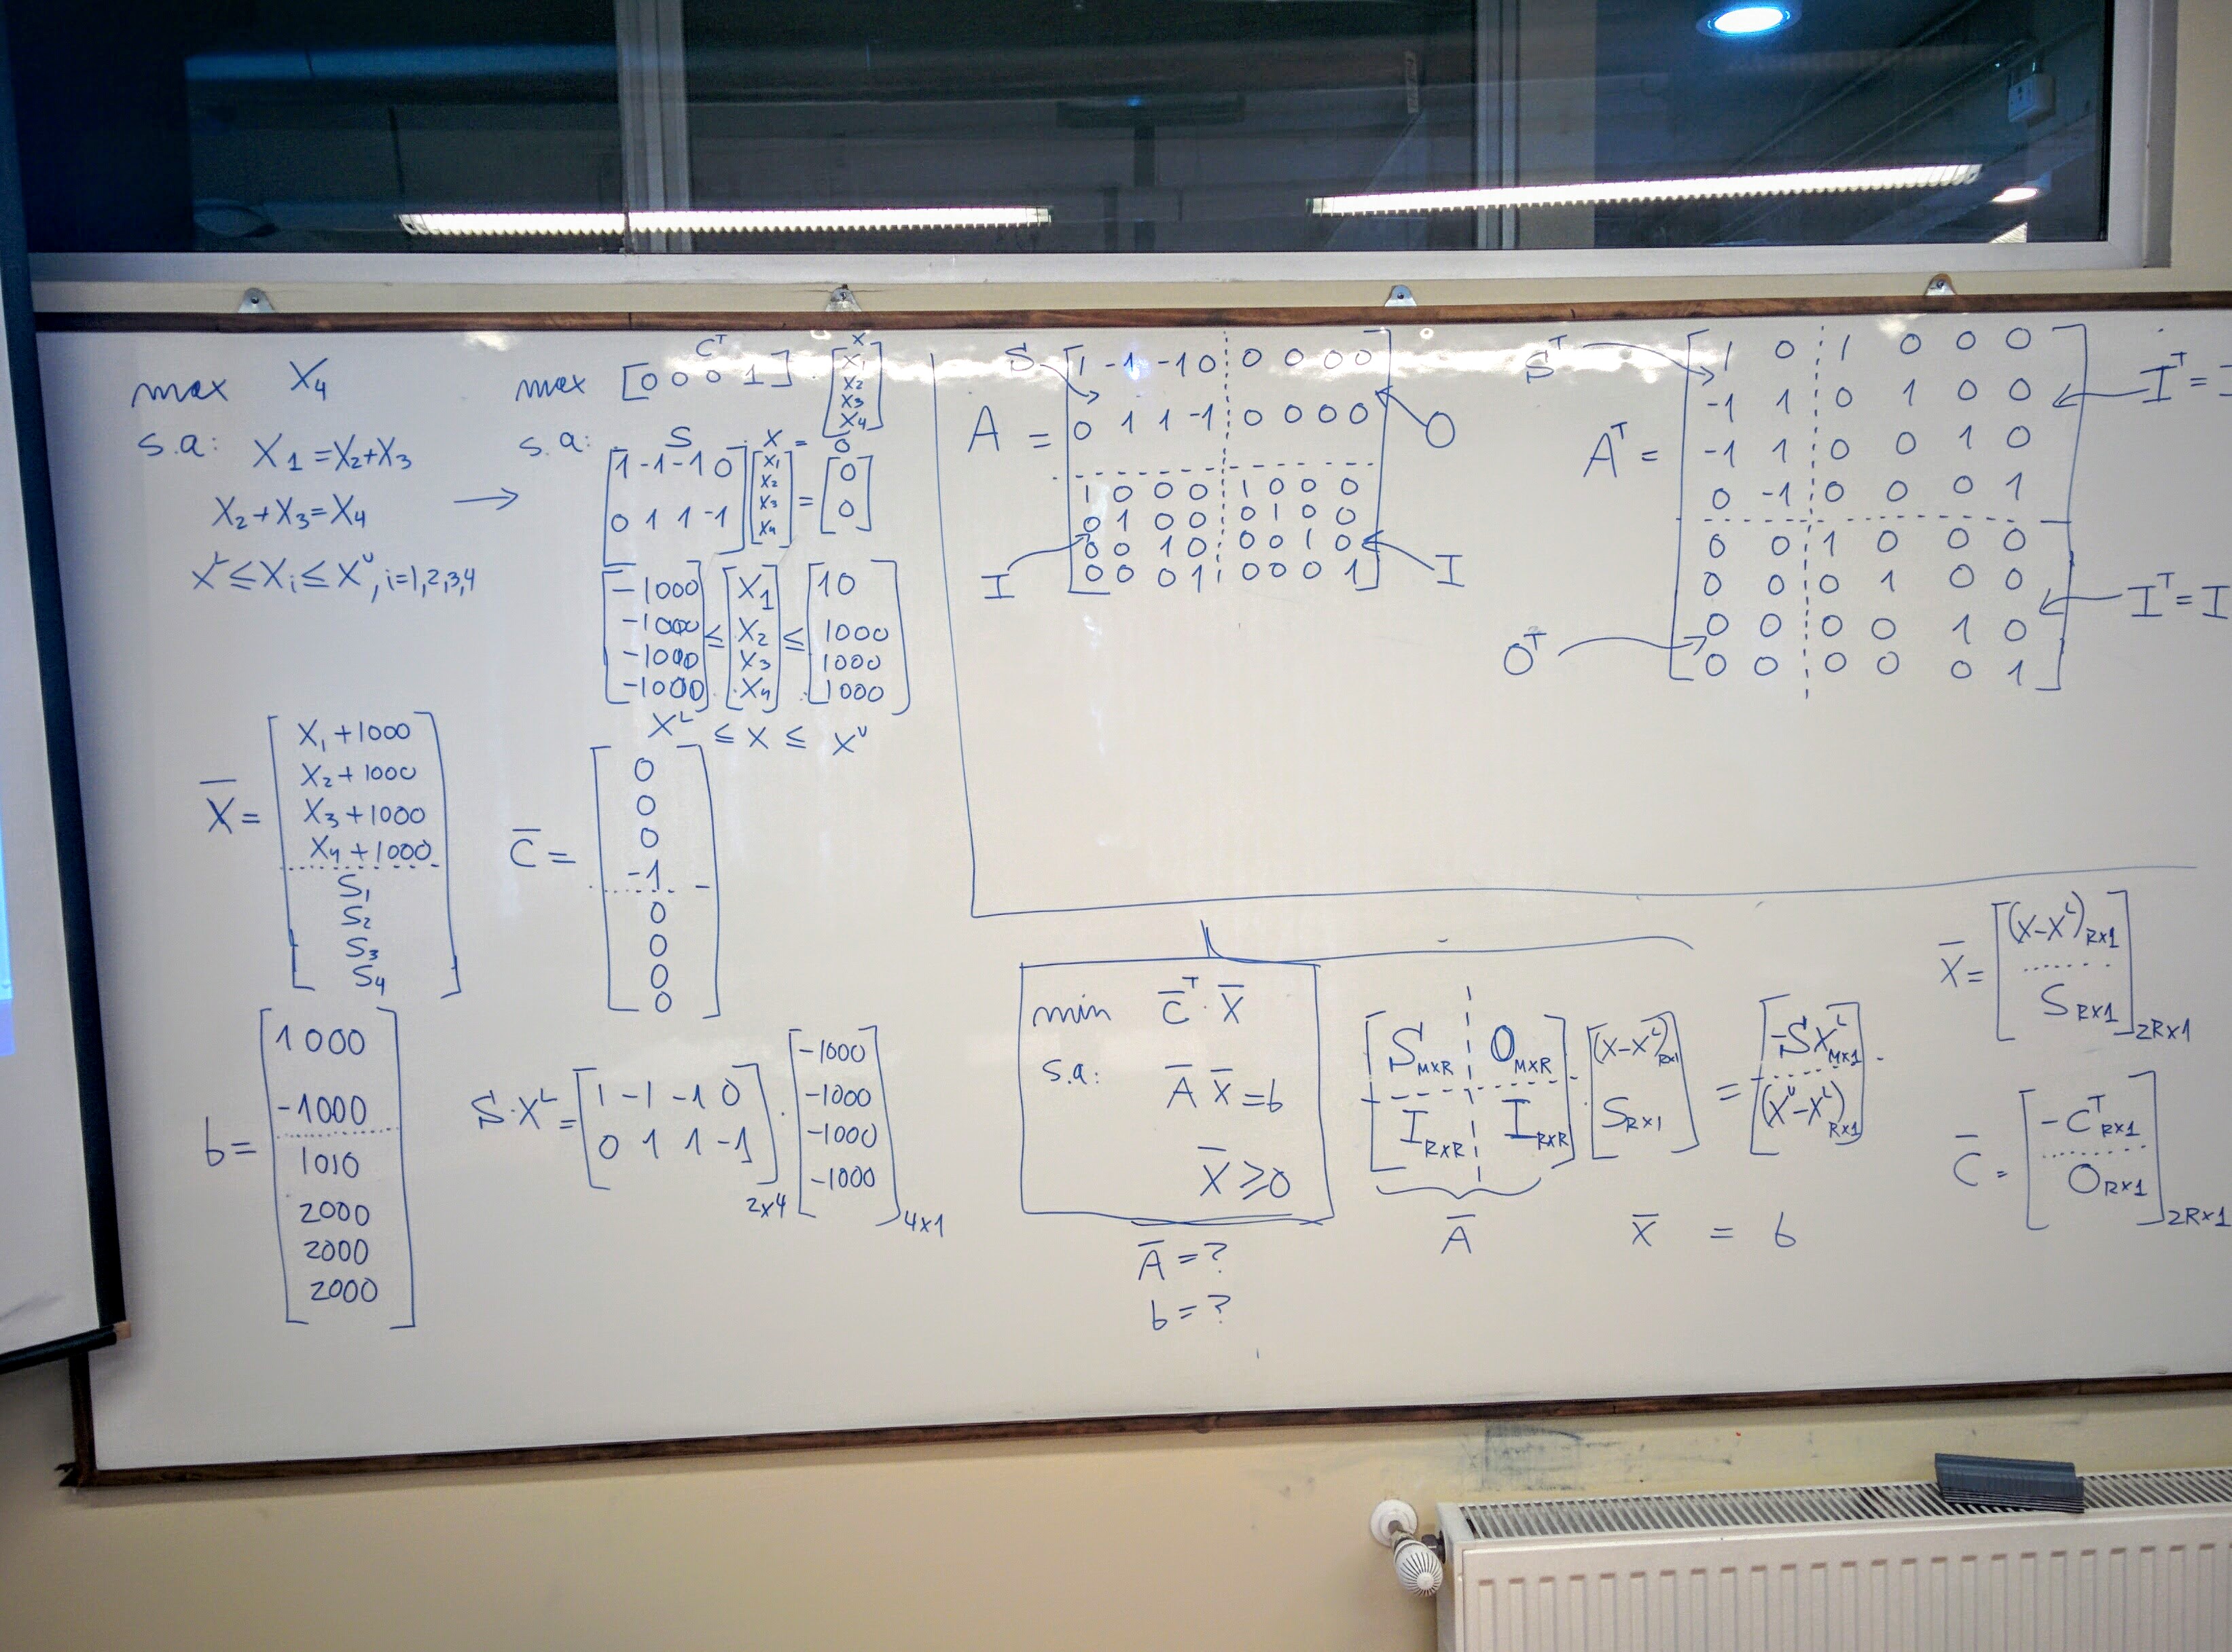 max X₄
s.a: X₁ = X₂+X₃
X₂+X₃=X₄
X^L ≤ X_i ≤ X^U, i=1,2,3,4
→
max [0 0 0 1] · [X₁ X₂ X₃ X₄]
C^T
X
s.a:
S · X = 0
[1 -1 -1 0] [X₁ X₂ X₃ X₄] = [0 0]
[0 1 1 -1]
[-1000] [X₁] [10]
[-1000] ≤ [X₂] ≤ [1000]
[-1000] [X₃] [1000]
[-1000] [X₄] [1000]
X^L ≤ X ≤ X^U
X̄ =
X₁ + 1000
X₂ + 1000
X₃ + 1000
X₄ + 1000
S₁
S₂
S₃
S₄
C̄ =
0
0
0
-1
0
0
0
0
b =
1000
-1000
1010
2000
2000
2000
S·X^L = [1 -1 -1 0] · [-1000]
[0 1 1 -1] [-1000]
[-1000]
[-1000]
2x4
4x1
S
A =
1 -1 -1 0 0 0 0 0
0 1 1 -1 0 0 0 0
1 0 0 0 1 0 0 0
0 1 0 0 0 1 0 0
0 0 1 0 0 0 1 0
0 0 0 1 0 0 0 1
O
I
I
S^T
A^T =
1 0 1 0 0 0
-1 1 0 1 0 0
-1 1 0 0 1 0
0 -1 0 0 0 1
0 0 1 0 0 0
0 0 0 1 0 0
0 0 0 0 1 0
0 0 0 0 0 1
I^T =
I^T = I
O^T
min C̄^T · X̄
s.a:
Ā X̄ = b
X̄ ≥ 0
Ā = ?
b = ?
[S_MxR O_MxR] · [(X-X^L)_Rx1] = [-SX^L_Mx1]
[I_RxR I_RxR] [S_Rx1] [(X^U-X^L)_Rx1]
Ā X̄ = b
X̄ = [(X-X^L)_Rx1]
[S_Rx1] 2Rx1
C̄ = [-C^T_Rx1]
[O_Rx1] 2Rx1